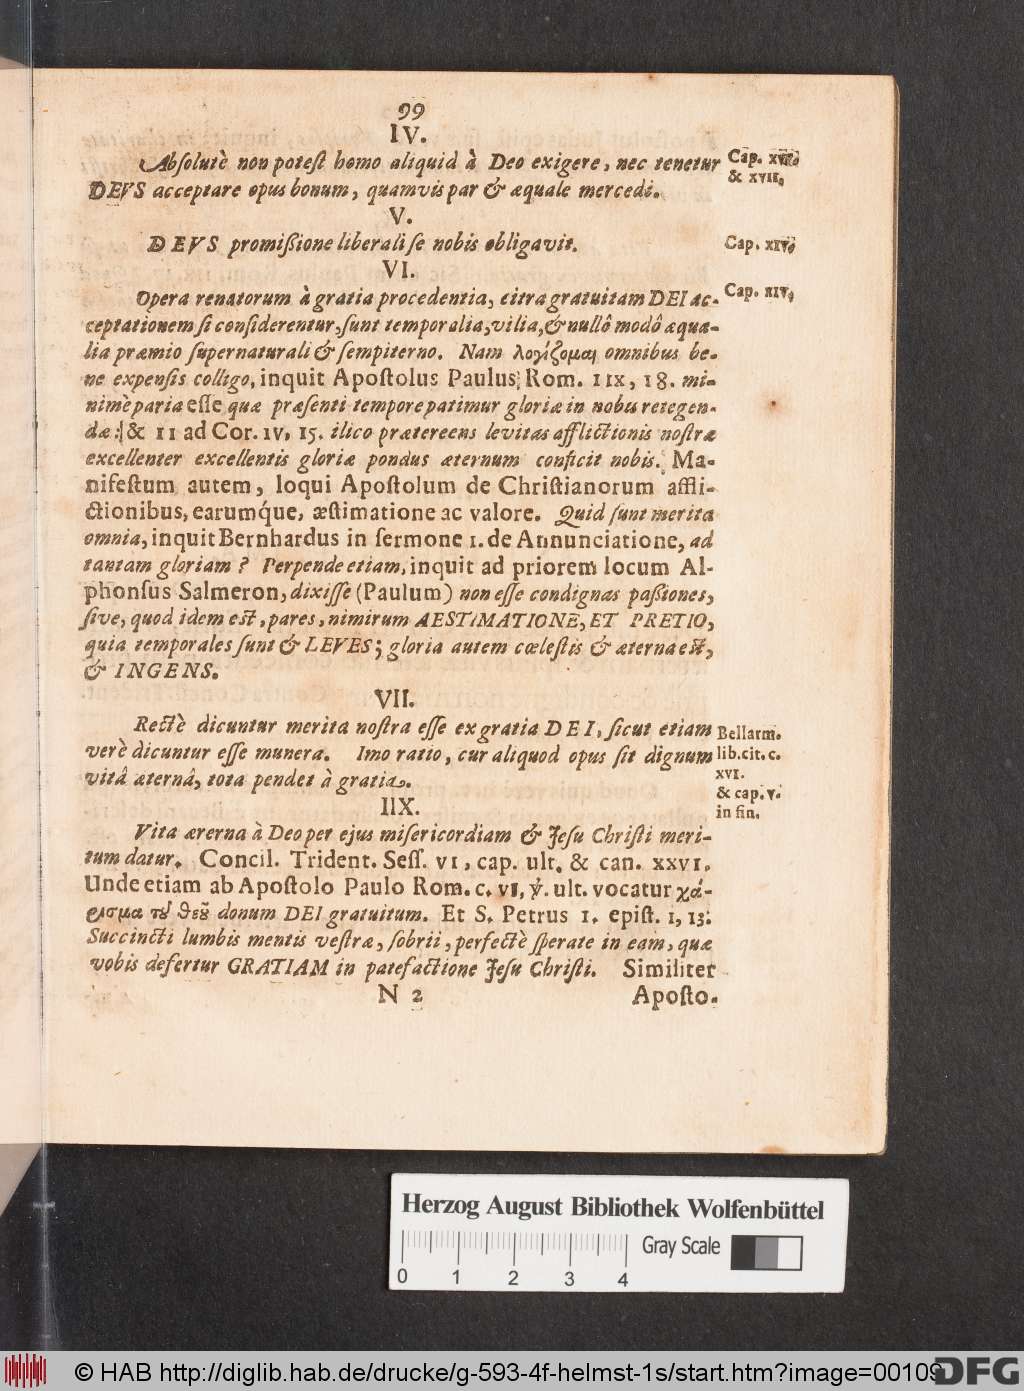 99
IV.
Absolutè non potest homo aliquid à Deo exigere, nec tenetur
Cap. xvi.
& xvii.
DEVS acceptare opus bonum, quamvis par & æquale mercedi.
V.
DEVS promißione liberali se nobis obligavit.
Cap. xiv.
VI.
Opera renatorum à gratia procedentia, citra gratuitam DEI ac-
Cap. xiv.
ceptationem si considerentur, sunt temporalia, vilia, & nullô modô æqua-
lia præmio supernaturali & sempiterno. Nam λογίζομαι omnibus be-
ne expensis colligo, inquit Apostolus Paulus, Rom. IIX, 18. mi-
nimè paria esse quæ præsenti tempore patimur gloriæ in nobis retegen-
dæ: & II ad Cor. IV, 15. ilico prætereens levitas afflictionis nostræ
excellenter excellentis gloriæ pondus æternum conficit nobis. Ma-
nifestum autem, loqui Apostolum de Christianorum affli-
ctionibus, earumq́ue, æstimatione ac valore. Quid sunt merita
omnia, inquit Bernhardus in sermone 1. de Annunciatione, ad
tantam gloriam? Perpende etiam, inquit ad priorem locum Al-
phonsus Salmeron, dixisse (Paulum) non esse condignas paßiones,
sive, quod idem est, pares, nimirum AESTIMATIONE, ET PRETIO,
quia temporales sunt & LEVES; gloria autem cœlestis & æterna est,
& INGENS.
VII.
Rectè dicuntur merita nostra esse ex gratia DEI, sicut etiam
verè dicuntur esse munera. Imo ratio, cur aliquod opus sit dignum
vitâ æternâ, tota pendet à gratia.
Bellarm.
lib. cit. c.
XVI.
& cap. v.
in fin.
IIX.
Vita æterna à Deo per ejus misericordiam & Jesu Christi meri-
tum datur. Concil. Trident. Sess. VI, cap. ult. & can. XXVI.
Unde etiam ab Apostolo Paulo Rom. c. VI, ℣. ult. vocatur χά-
ρισμα τȣ͂ θεȣ͂ donum DEI gratuitum. Et S. Petrus 1. epist. 1, 13:
Succincti lumbis mentis vestræ, sobrii, perfectè sperate in eam, quæ
vobis defertur GRATIAM in patefactione Jesu Christi. Similiter
N 2
Aposto-
Herzog August Bibliothek Wolfenbüttel
Gray Scale
0 1 2 3 4
© HAB http://diglib.hab.de/drucke/g-593-4f-helmst-1s/start.htm?image=00109
DFG